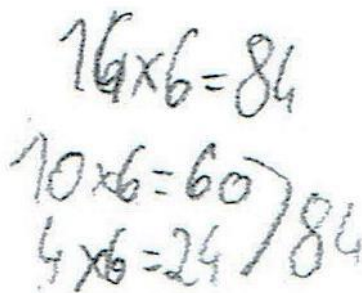 14×6=84
10×6=60
4×6=24 ) 84